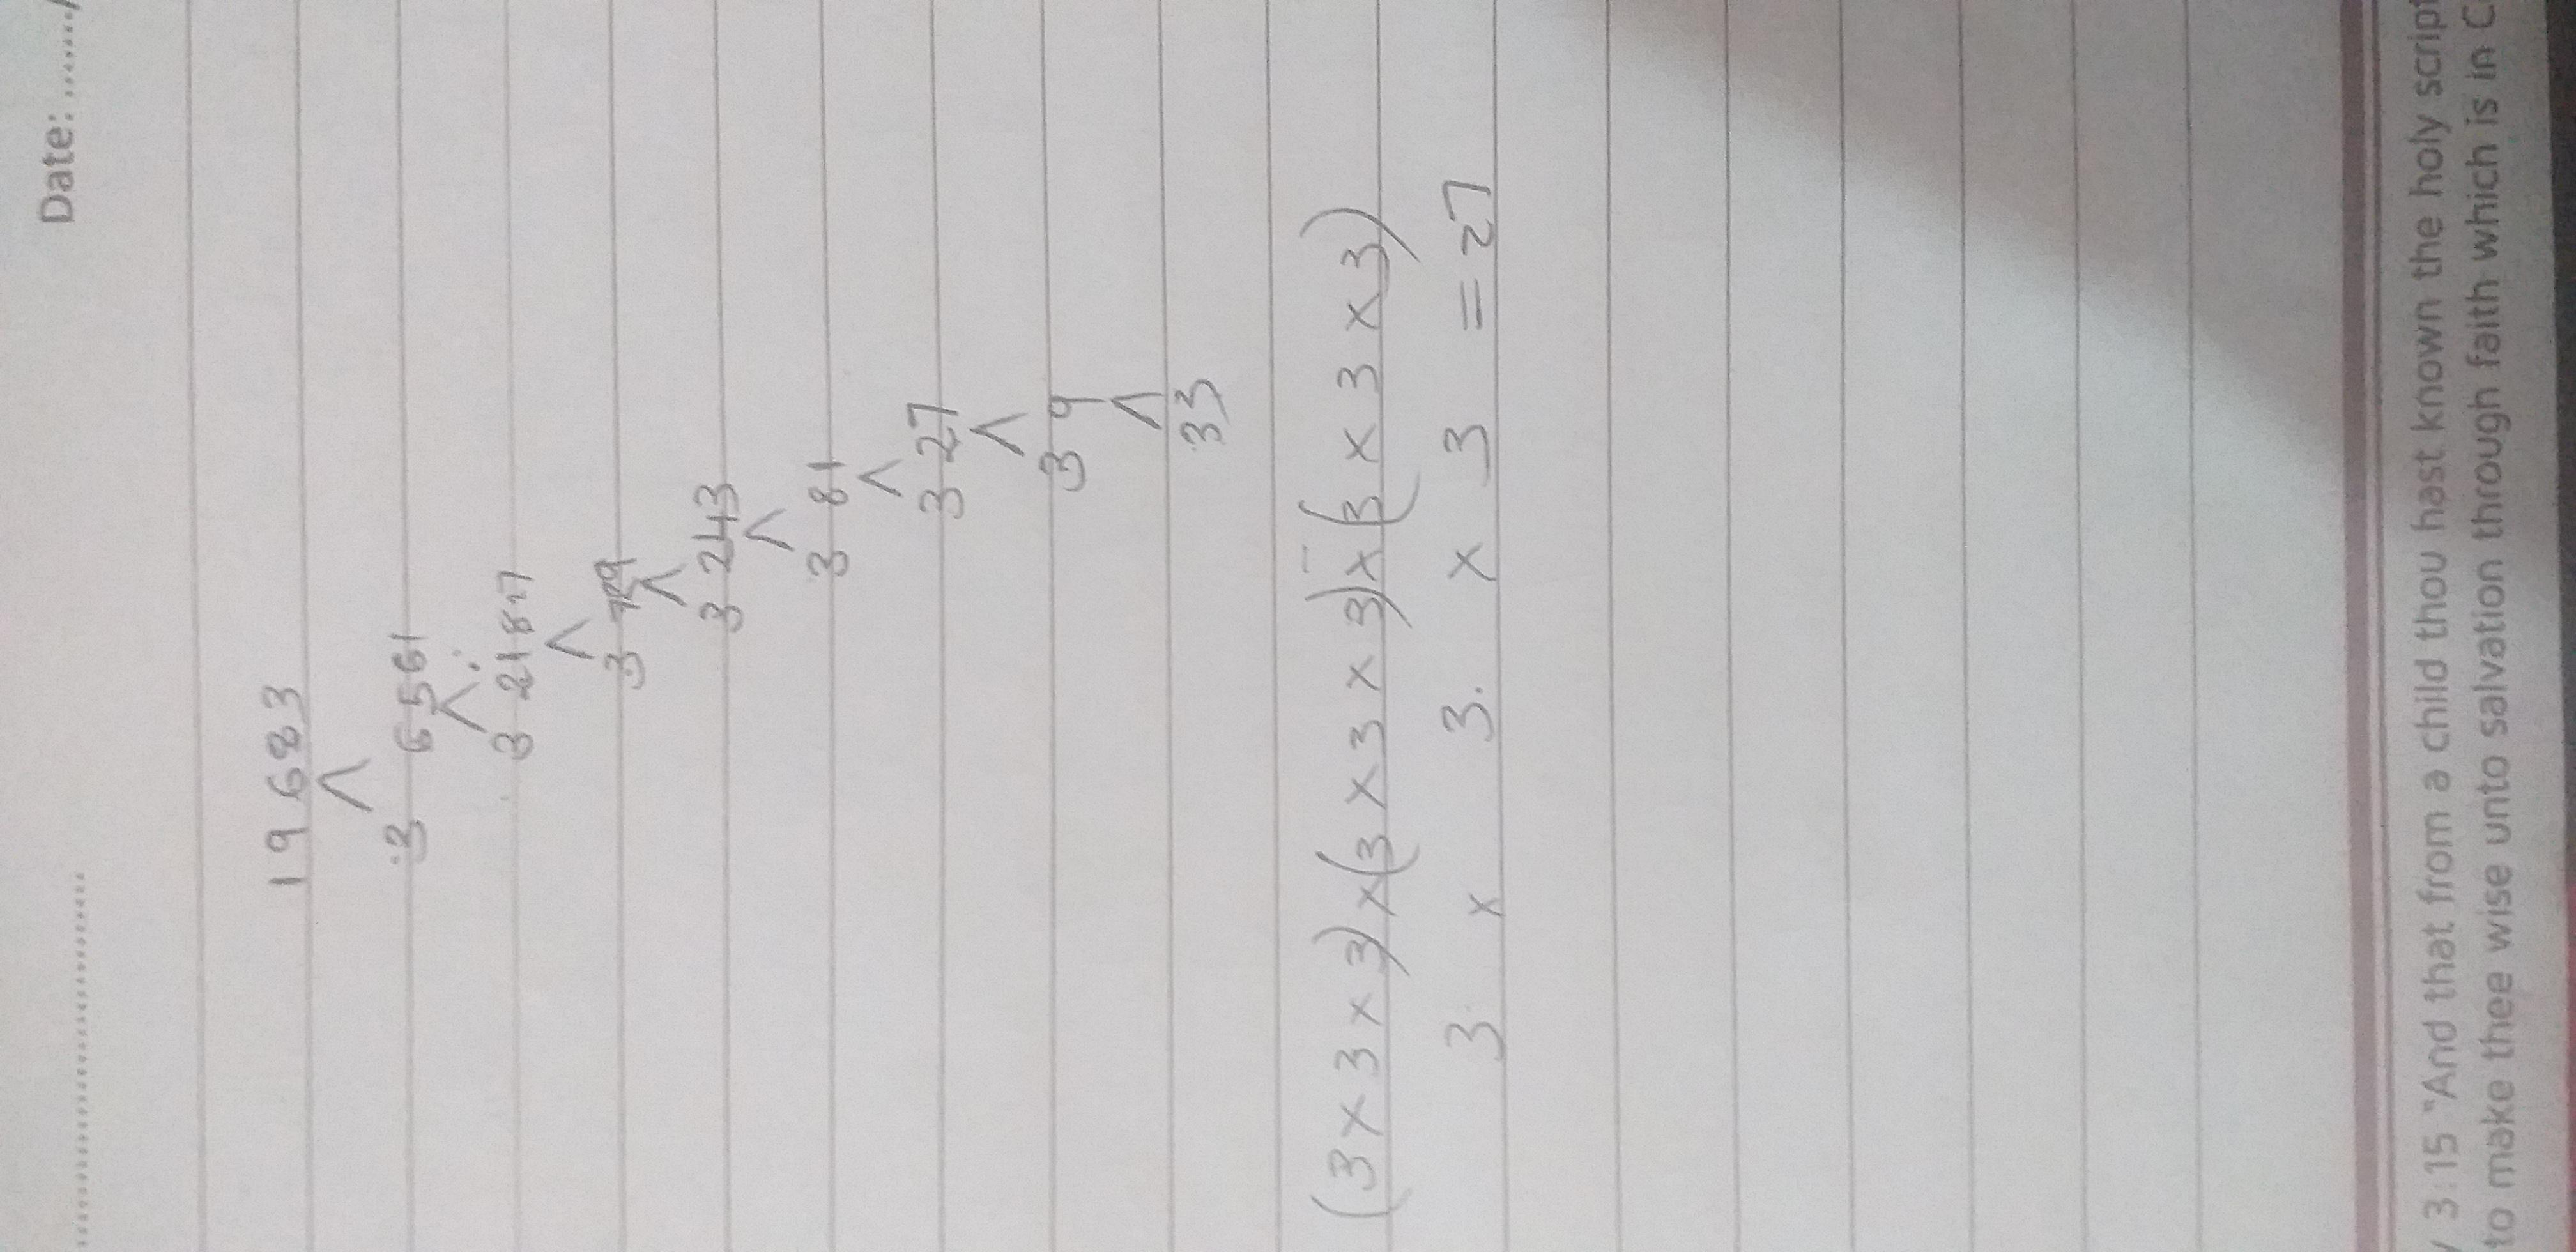 Date: ......../
......................
19683
3 6561
3 2187
3 729
3 243
3 81
3 27
3 9
3 3
(3 x 3 x 3) x (3 x 3 x 3) x (3 x 3 x 3)
3 x 3. x 3 = 27
3:15 "And that from a child thou hast known the holy script
to make thee wise unto salvation through faith which is in C